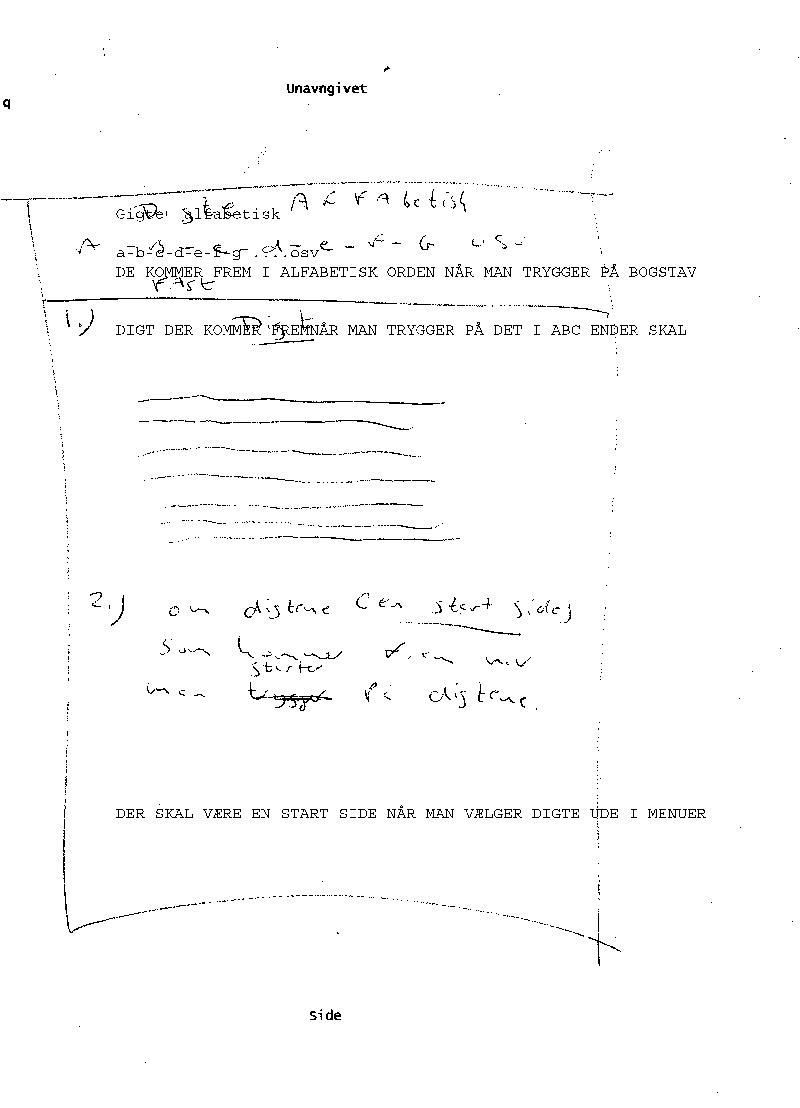 Unavngivet
q
Digte Alfabetisk ALFAbetisk
A a-b-c-d-e-f-g osv e - F - G USV
DE KOMMER FREM I ALFABETISK ORDEN NÅR MAN TRYGGER PÅ BOGSTAV
FAST
1.) DIGT DER KOMMER FREM NÅR MAN TRYGGER PÅ DET I ABC ENDER SKAL
Digt
2.) om digtene (en start side)
Som kommer frem når
starter
man trygger på digtene.
DER SKAL VÆRE EN START SIDE NÅR MAN VÆLGER DIGTE UDE I MENUER
Side